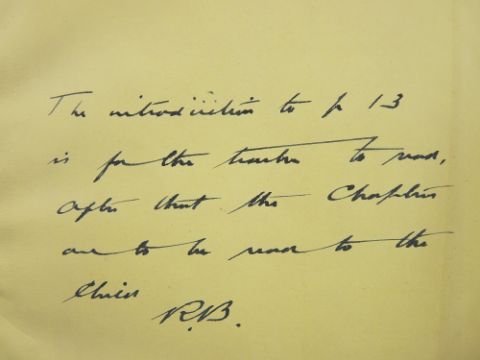 The introduction to p 13
is for the teacher to read,
after that the Chapters
are to be read to the
Child
R.B.